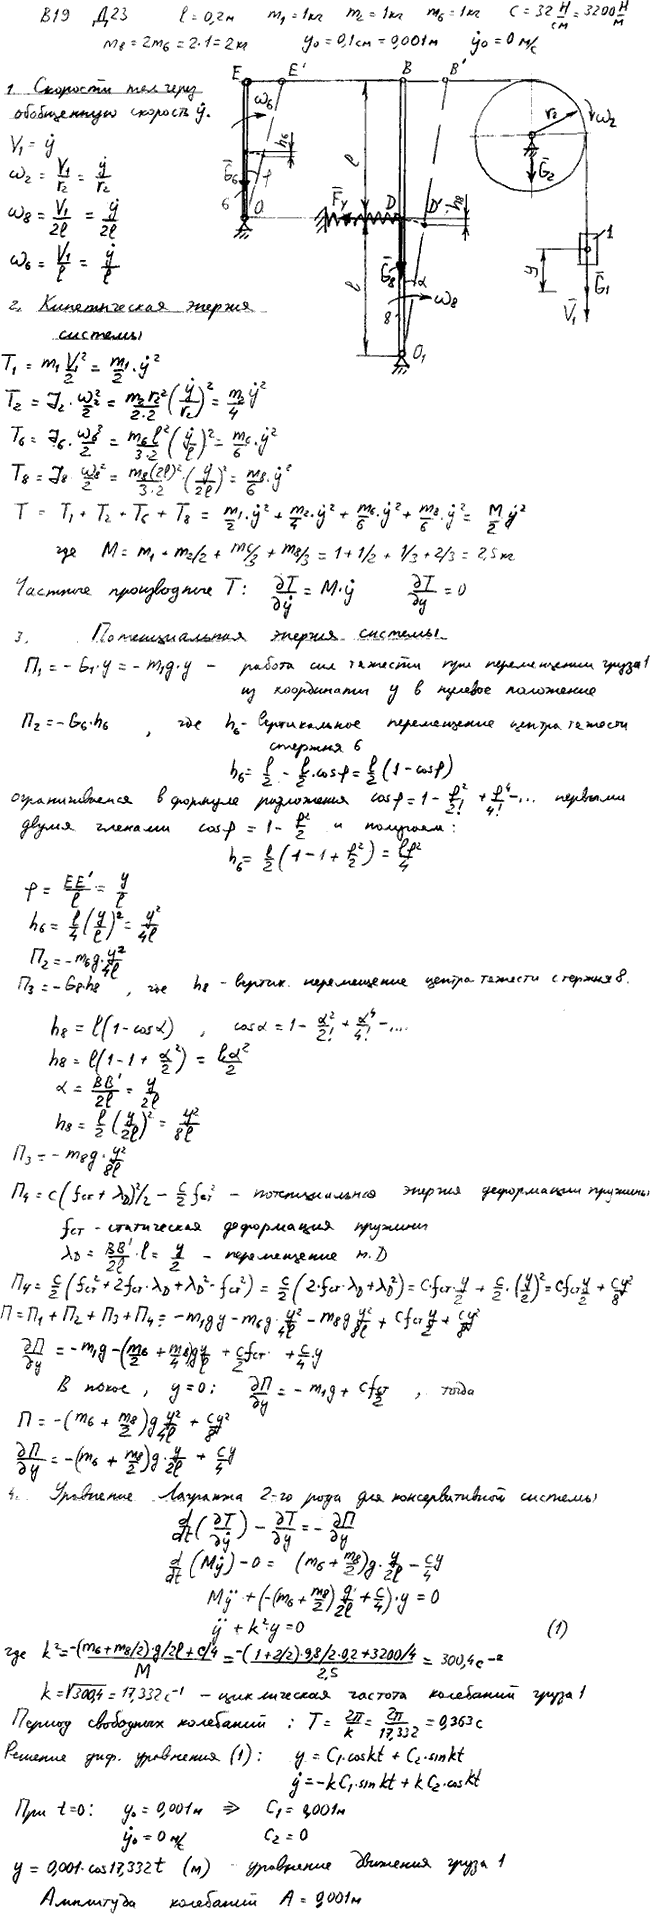 В19 Д23 l = 0,2м m₁ = 1кг m₂ = 1кг m₆ = 1кг C = 32 Н/см = 3200 Н/м
m₈ = 2m₆ = 2·1 = 2кг y₀ = 0,1см = 0,001м ẏ₀ = 0 м/с
1. Скорости тел через
обобщенную скорость ẏ.
V₁ = ẏ
ω₂ = V₁/r₂ = ẏ/r₂
ω₈ = V₁/2l = ẏ/2l
ω₆ = V₁/l = ẏ/l
E E' B B'
ω₆ h₆ l r₂ ω₂
Ḡ₆ φ 6 O F̄у D D' h₈ Ḡ₂
l Ḡ₈ α 8 ω₈ O₁ 1 y Ḡ₁ V̄₁
2. Кинетическая энергия
системы
T₁ = m₁V₁²/2 = m₁/2·ẏ²
T₂ = J₂·ω₂²/2 = m₂r₂²/2·2 (ẏ/r₂)² = m₂/4 ẏ²
T₆ = J₆·ω₆²/2 = m₆l²/3·2 (ẏ/l)² = m₆/6·ẏ²
T₈ = J₈·ω₈²/2 = m₈(2l)²/3·2·(ẏ/2l)² = m₈/6·ẏ²
T = T₁ + T₂ + T₆ + T₈ = m₁/2·ẏ² + m₂/4·ẏ² + m₆/6·ẏ² + m₈/6·ẏ² = M/2 ẏ²
где M = m₁ + m₂/2 + m₆/3 + m₈/3 = 1 + 1/2 + 1/3 + 2/3 = 2,5кг
Частные производные T: ∂T/∂ẏ = M·ẏ ∂T/∂y = 0
3. Потенциальная энергия системы
П₁ = -G₁·y = -m₁g·y - работа сил тяжести при перемещении груза 1
из координаты y в нулевое положение
П₂ = -G₆·h₆, где h₆ - вертикальное перемещение центра тяжести
стержня 6
h₆ = l/2 - l/2·cosφ = l/2(1-cosφ)
ограничиваемся в формуле разложения cosφ = 1 - φ²/2! + φ⁴/4! -... первыми
двумя членами cosφ = 1 - φ²/2 и получаем:
h₆ = l/2(1-1+φ²/2) = lφ²/4
φ = EE'/l = y/l
h₆ = l/4(y/l)² = y²/4l
П₂ = -m₆g·y²/4l
П₃ = -G₈·h₈, где h₈ - вертик. перемещение центра тяжести стержня 8.
h₈ = l(1-cosα), cosα = 1 - α²/2! + α⁴/4! -...
h₈ = l(1-1+α²/2) = lα²/2
α = BB'/2l = y/2l
h₈ = l/2(y/2l)² = y²/8l
П₃ = -m₈g·y²/8l
П₄ = c(fст + λD)²/2 - c/2 fст² - потенциальная энергия деформации пружины
fст - статическая деформация пружины
λD = BB'/2l·l = y/2 - перемещение т. D
П₄ = c/2(fст² + 2fст·λD + λD² - fст²) = c/2(2·fст·λD + λD²) = C·fст·y/2 + c/2·(y/2)² = cfст y/2 + cy²/8
П = П₁ + П₂ + П₃ + П₄ = -m₁gy - m₆g·y²/4l - m₈g y²/8l + cfст y/2 + cy²/8
∂П/∂y = -m₁g - (m₆/2 + m₈/4)g y/l + c/2 fст + c/4·y
В покое, y = 0: ∂П/∂y = -m₁g + cfст/2, тогда
П = -(m₆ + m₈/2)g y²/4l + cy²/8
∂П/∂y = -(m₆ + m₈/2)g·y/2l + cy/4
4. Уравнение Лагранжа 2-го рода для консервативной системы
d/dt(∂T/∂ẏ) - ∂T/∂y = -∂П/∂y
d/dt(Mẏ) - 0 = (m₆ + m₈/2)g·y/2l - cy/4
Mÿ + (-(m₆ + m₈/2)g/2l + c/4)·y = 0
ÿ + k²·y = 0 (1)
где k² = -(m₆ + m₈/2)·g/2l + c/4 / M = -(1 + 2/2)·9,8/2·0,2 + 3200/4 / 2,5 = 300,4 с⁻²
k = √300,4 = 17,332 с⁻¹ - циклическая частота колебаний груза 1
Период свободных колебаний: T = 2π/k = 2π/17,332 = 0,363с
Решение диф. уравнения (1): y = C₁·coskt + C₂·sinkt
ẏ = -kC₁·sinkt + kC₂·coskt
При t=0: y₀ = 0,001м ⇒ C₁ = 0,001м
ẏ₀ = 0 м/с C₂ = 0
y = 0,001·cos17,332t (м) - уравнение движения груза 1
Амплитуда колебаний A = 0,001м